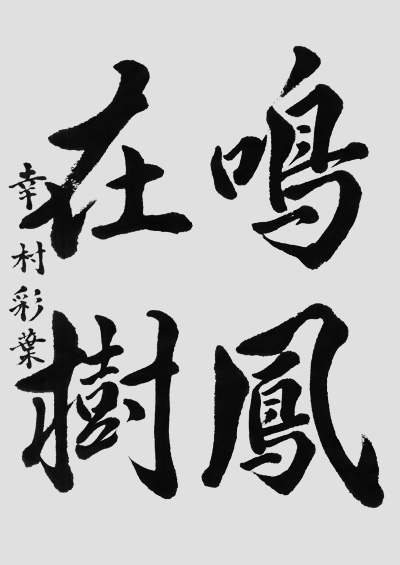 鳴鳳
在樹
幸村彩葉